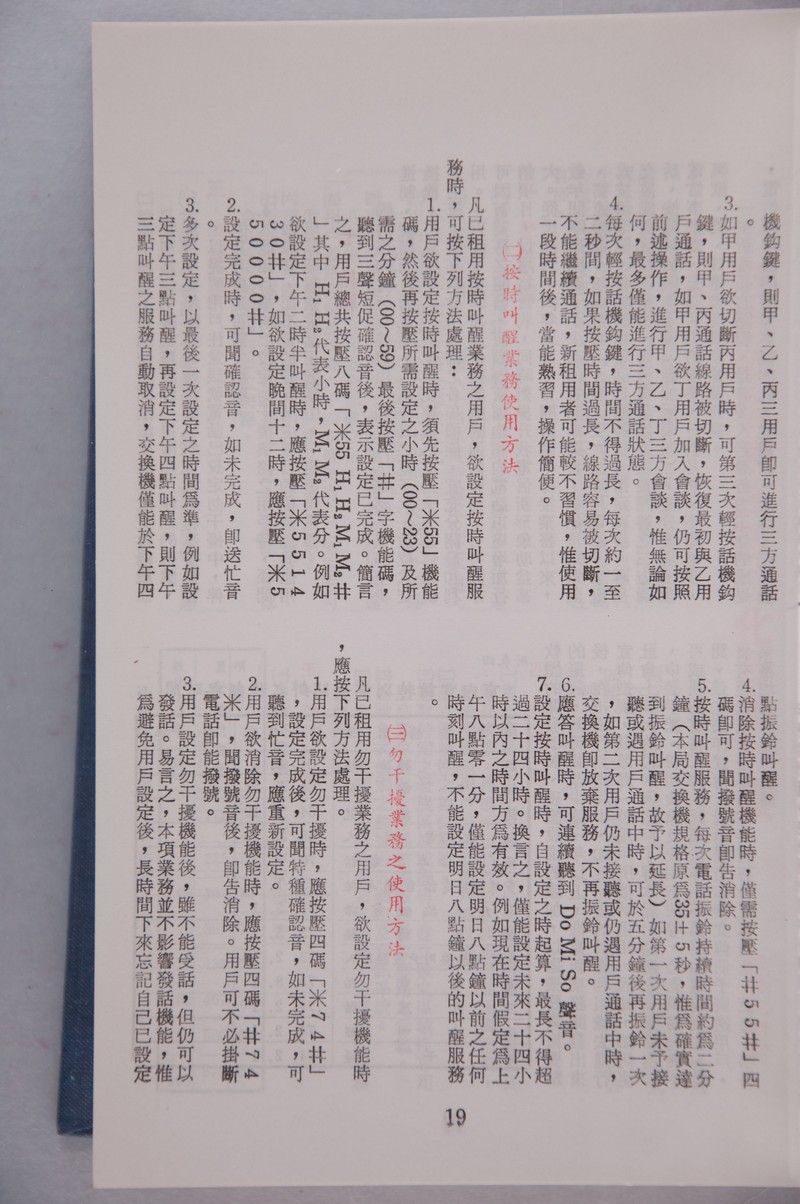 機鈎鍵，則甲、乙、丙三用戶卽可進行三方通話
。
3.如甲用戶欲切斷丙用戶時，可第三次輕按話機鈎
鍵，則甲、丙通話線路被切斷，恢復最初與乙用
戶通話，如甲用戶欲丁用戶加入會談，仍可按照
前述操作，進行甲、乙、丁三方會談，惟無論如
何，最多僅能進行三方通話狀態。
4.每次輕按話機鈎鍵，時間不得過長，每次約一至
二秒間，如果按壓時間過長，線路容易被切斷，
不能繼續通話，新租用者可能較不習慣，惟使用
一段時間後，當能熟習，操作簡便。
㈡按時叫醒業務使用方法
凡已租用按時叫醒業務之用戶，欲設定按時叫醒服
務時，可按下列方法處理：
1.用戶欲設定按時叫醒時，須先按壓「米55」機能
碼，然後再按壓所需設定之小時（00～23）及所
需之分鐘（00～59）最後按壓「井」字機能碼，
聽到三聲短促確認音後，表示設定已完成。簡言
之，用戶總共按壓八碼「米55 H₁ H₂ M₁ M₂井
」其中 H₁ H₂代表小時，M₁ M₂代表分。例如
欲設定下午二時半叫醒時，應按壓「米5514
30井」，如欲設定晚間十二時，應按壓「米5
50000井」。
2.設定完成時，可聞確認音，如未完成，卽送忙音
。
3.多次設定，以最後一次設定之時間爲準，例如設
定下午三點叫醒，再設定下午四點叫醒，則下午
三點叫醒之服務自動取消，交換機僅能於下午四
點振鈴叫醒。
4.消除按時叫醒機能時，僅需按壓「井55井」四
碼卽可，聞撥號音卽告消除。
5.按時叫醒服務，每次電話振鈴持續時間約爲二分
鐘（本局交換機規格原爲35±5秒，惟爲確實達
到振鈴叫醒，故予以延長）如第一次用戶未予接
聽或遇用戶通話中時，可於五分鐘後再振鈴一次
，如第二次用戶仍未接聽或仍遇用戶通話中時，
交換機卽放棄服務，不再振鈴叫醒。
6.應答叫醒時，可連續聽到 Do Mi So 聲音。
7.設定按時叫醒時，自設定之時起算，最長不得超
過二十四小時。換言之，僅能設定未來二十四小
時以內之時間方爲有效。例如現在時間假定爲上
午八點零一分，僅能設定明日八點鐘以前之任何
時刻叫醒，不能設定明日八點鐘以後的叫醒服務
。
㈢勿干擾業務之使用方法
凡已租用勿干擾業務之用戶，欲設定勿干擾機能時
，應按下列方法處理。
1.用戶欲設定勿干擾時，應按壓四碼「米74井」
，設定完成後，可聞特種確認音，如未完成，可
聽到忙音，應重新設定。
2.用戶欲消除勿干擾機能時，應按壓四碼「井74
米」，聞撥號音後，卽告消除。用戶可不必掛斷
電話卽能撥號。
3.用戶設定勿干擾機能後，雖不能受話，但仍可以
發話。易言之，本項業務並不影響發話機能，惟
爲避免用戶設定後，長時間下來忘記自己已設定
19